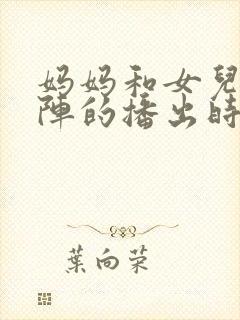 妈妈和女兒
陣的播出時
葉向荣